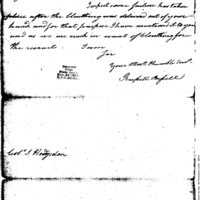 I expect some failure has taken
place after the Cloathing was delivered out of your
hand and for that purpose I have mentioned it to you
and as we are much in want of Cloathing for
the recruits. I am
Sir
Your Most Humble Servt.
Russell Bissell
Colo. S. Hodgdon